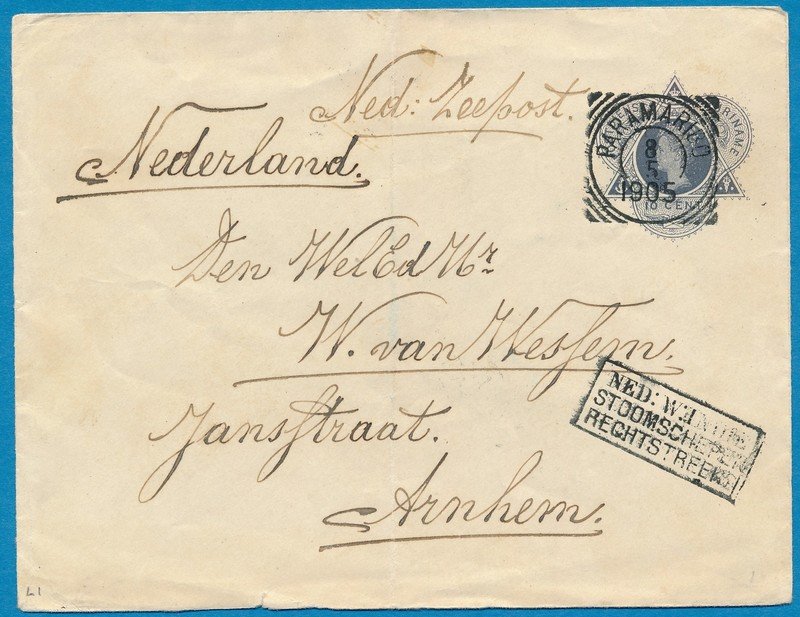 Ned: Zeepost.
SURINAME
PARAMARIBO
8
5
1905
10 CENT
Nederland.
Den WelEd Hr
W. van Wessem.
Jansstraat.
Arnhem.
NED: W.INDIE
STOOMSCHEPEN
RECHTSTREEKS
L1